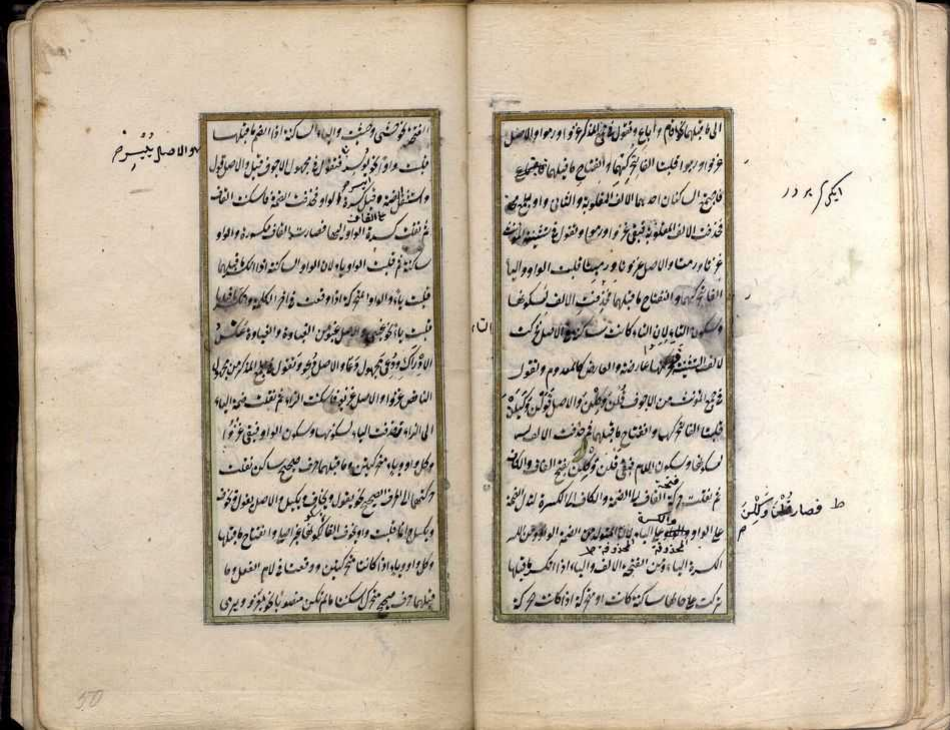 الى ما قبلهما نحو اقام واباع وتقول فى جمع المذكر غزوا ورموا والاصل
غزووا ورميوا قلبتا الفا لتحركهما وانفتاح ما قبلهما
فاجتمعت الساكنان احدهما الالف المقلوبة والثانى واو الجمع
فحذفت الالف المقلوبة فبقى غزوا ورموا وتقول فى تثنية المؤنث
غزتا ورمتا والاصل غزوتا ورميتا قلبت الواو والياء
الفا لتحركهما وانفتاح ما قبلهما فحذفت الالف لسكونها
وسكون التاء لان التاء كانت ساكنة فى الاصل فحركت
لالف التثنية فحركتها عارضة والعارض كالمعدوم وتقول
فى جمع المؤنث من الاجوف قلن وكلن والاصل قولن وكيلن
قلبتا الفا لتحركهما وانفتاح ما قبلهما ثم حذفت الالف
لسكونها وسكون اللام فبقى قلن وكلن بفتح القاف والكاف
ثم نقلت فتحة القاف الى الضمة والكاف الى الكسرة لتدل الضمة
على الواو والكسرة على الياء لان المتولد من الضمة الواو ومن
الكسرة الياء ومن الفتحة الالف والياء اذا انكسر ما قبلها
تركت على حالها ساكنة كانت او متحركة اذا كانت الحركة
ايكى بردر
ط فصار قلن وكلن
المحذوفة
المحذوفة ط
الفتحة نحو خشى وخشيت والياء الساكنة اذا انضم ما قبلها
قلبت واوا نحو يوسر فتقول فى مجهول الاجوف قيل والاصل قول
فاستثقل الضمة قبل كسرة الواو فحذفت الضمة فاسكنت القاف
ثم نقلت كسرة الواو اليها فصارت القاف مكسورة والواو
ساكنة ثم قلبت الواو ياء لان الواو الساكنة اذا انكسر ما قبلها
قلبت ياء والواو المتحركة اذا وقعت فى اخر الكلمة وانكسر ما قبلها
قلبت ياء نحو غبى والاصل غبو من الغباوة والغباوة عكس
الادراك ودعى مجهول دعا والاصل دعو وتقول فى جمع المذكر من مجهول
الناقص غزوا والاصل غزيوا فاسكنت الزاء ثم نقلت ضمة الياء
الى الزاء وحذفت الياء لسكونها وسكون الواو فبقى غزوا
وكل واو وياء متحركتين وما قبلهما حرف صحيح ساكن نقلت
حركتهما الى الحرف الصحيح نحو يقول ويخاف ويكيل والاصل يقول ويخوف
ويكيل وانما قلبت واو يخوف الفا لتحركها فى الاصل وانفتاح ما قبلها
وكل واو وياء اذا كانتا متحركتين ووقعتا فى لام الفعل وما
قبلهما حرف صحيح متحرك اسكنتا ما لم تكن منصوبا نحو يغزو ويرمى
والاصل ييسر
50